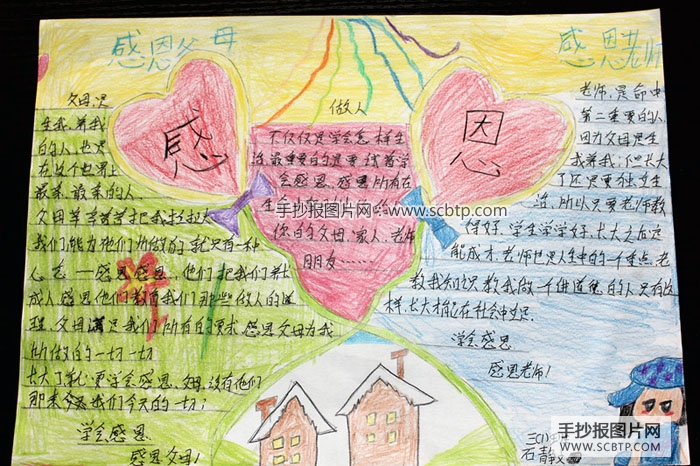 感恩父母
父母,是
生我,养我
的人,也是
在这个世界上
最亲,最亲的人.
父母辛辛苦苦把我拉扯大
我们能为他们所做的就只有一种
心态——感恩感恩,他们把我们养大
成人,感恩他们教育我们那些做人的道
理,父母满足我们所有的要求,感恩父母为我
所做的一切一切
长大了,就更学会感恩,父母没有他们
那来今天我们今天的一切;
学会感恩
感恩父母!
感
做人
不仅仅是学会怎样生
活,最重要的是要试着学
会感恩,感恩所有在
你的父母,家人,老师
朋友……
手抄报图片网 www.scbtp.com
恩
感恩老师
老师,是命中
第二重要的人
因为父母是生
我养我,但长大
了还是要独立生
活,所以只要老师教
得好,学生学学好,长大之后还
能成才,老师也是人生中的一个重点,老
教我知识教我做一个讲道德的人只有这
样,长大才能在社会中生活.
学会感恩
感恩老师!
三(1)
石静
手抄报图片网
WWW.SCBTP.COM